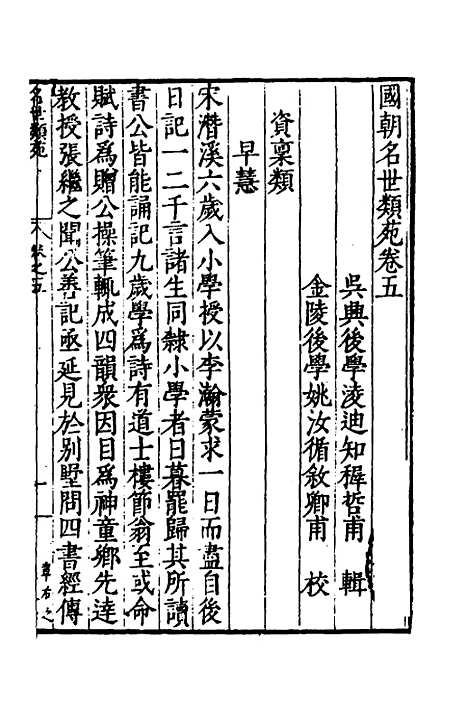 國朝名世類苑卷五
吳興後學淩迪知穉哲甫 輯
金陵後學姚汝循敘卿甫 校
資稟類
早慧
宋潛溪六歲入小學授以李瀚蒙求一日而盡自後
日記一二千言諸生同隸小學者日暮罷歸其所讀
書公皆能誦記九歲學爲詩有道士樓節翁至或命
賦詩爲贈公操筆輒成四韻衆因目爲神童鄉先逹
教授張繼之聞公善記亟延見於別墅問四書經傳
名世類苑 卷之五 一